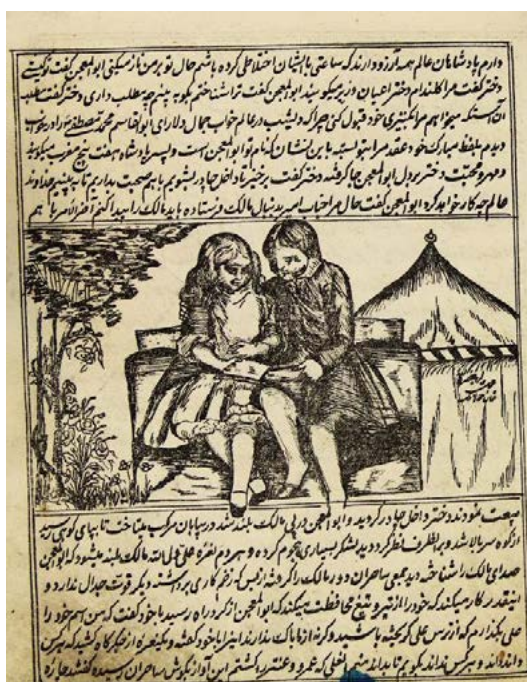 دارم پادشاهان عالم همه آرزو دارند که ساعتی با ایشان اختلاطی کرده باشم حال تو بر من ناز میکنی ابوالمعجن گفت تو کیستی
دختر گفت مرا گلندام دختر اعیان وزیر میگویند ابوالمعجن گفت ترا شناختم بگو به بینم چه مطلب داری دختر گفت مطلب
آن استکه میخواهم مرا بکنیزی خود قبول کنی چرا که دلیشب در عالم خواب جمال دلارای ابوالقاسم محمد مصطفی را در خواب
دیدم بلفظ مبارک خود عقد مرا بتو بسته باین نشان که نام تو ابوالمعجن است و پسر پادشاه هفت شهر مغرب میگویند
و مهر و محبت دختر بر دل ابوالمعجن جا گرفته دختر گفت برخیز تا داخل چادر بشویم باهم صحبت بداریم تا به بینیم خداوند
عالم چه کار خواهد کرد ابوالمعجن گفت حال مرا جناب امیر بدنبال مالک فرستاده باید مالک را پیدا کنم آخرالامر با هم
صحبت نمودند دختر داخل چادر گردید و ابوالمعجن در پی مالک بلند شد در بیابان مرکب میتاخت تا بپای کوهی رسید
از کوه سر بالا شد و به اطرف نظر کرد دید لشکر بسیاری هجوم کرده و هر دم نعره علی ولی الله مالک بلند میشود که ابوالمعجن
صدای مالک را شناخت دید جمعی ساحران دور مالک را گرفته از بس که زخم کاری برداشته دیگر قوت جدال ندارد و
اینقدر کار میکند که خود را از تیر و تیغ محافظت میکند که ابوالمعجن از گرد راه رسید با خود گفت که من اسم خود را
علی بگذارم که از ترس علی گریخته باشند و گرنه از ما باک ندارند اینرا با خود گفته و یکنعره از جگرگاه کشید که هر کس
داند داند و هر کس نداند بگویم تا بداند منم آن علی که عمرو و عنتر را کشتم این آواز بگوش ساحران رسیده گفتند چاره